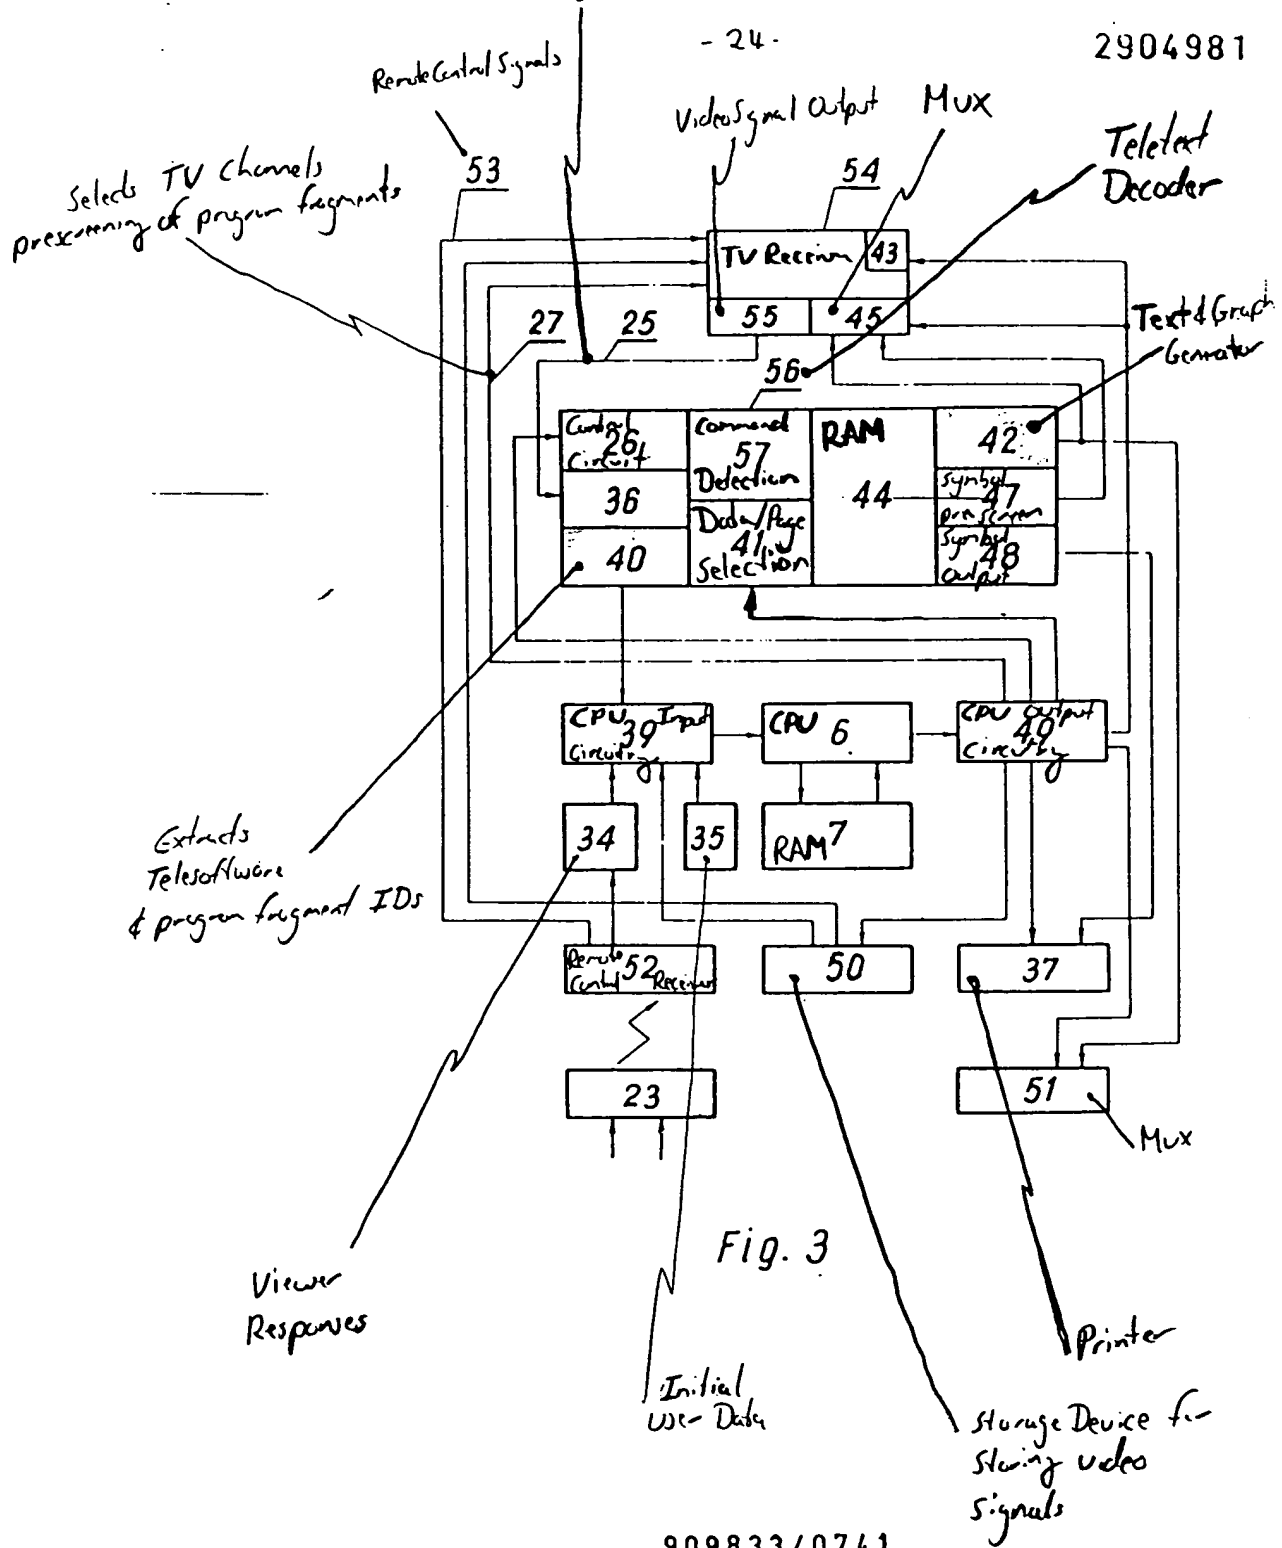 - 24 -
2904981
Remote Control Signals
Video Signal Output
Mux
Teletext
Decoder
Selects TV Channels
prescreening of program fragments
53
54
TV Receiver
43
55
45
27
25
56
Text & Graph
Generator
Control
26
Circuit
Command
57
Detection
RAM
44
42
36
Symbol
47
prescreen
40
Data/Page
41
Selection
Symbol
48
Output
CPU Input
39
Circuitry
CPU 6
CPU Output
49
Circuitry
34
35
RAM 7
Extracts
Telesoftware
& program fragment IDs
Remote 52
Control Receiver
50
37
23
51
Mux
Fig. 3
Viewer
Responses
Printer
Initial
User Data
Storage Device for
Storing video
Signals
909833/0741